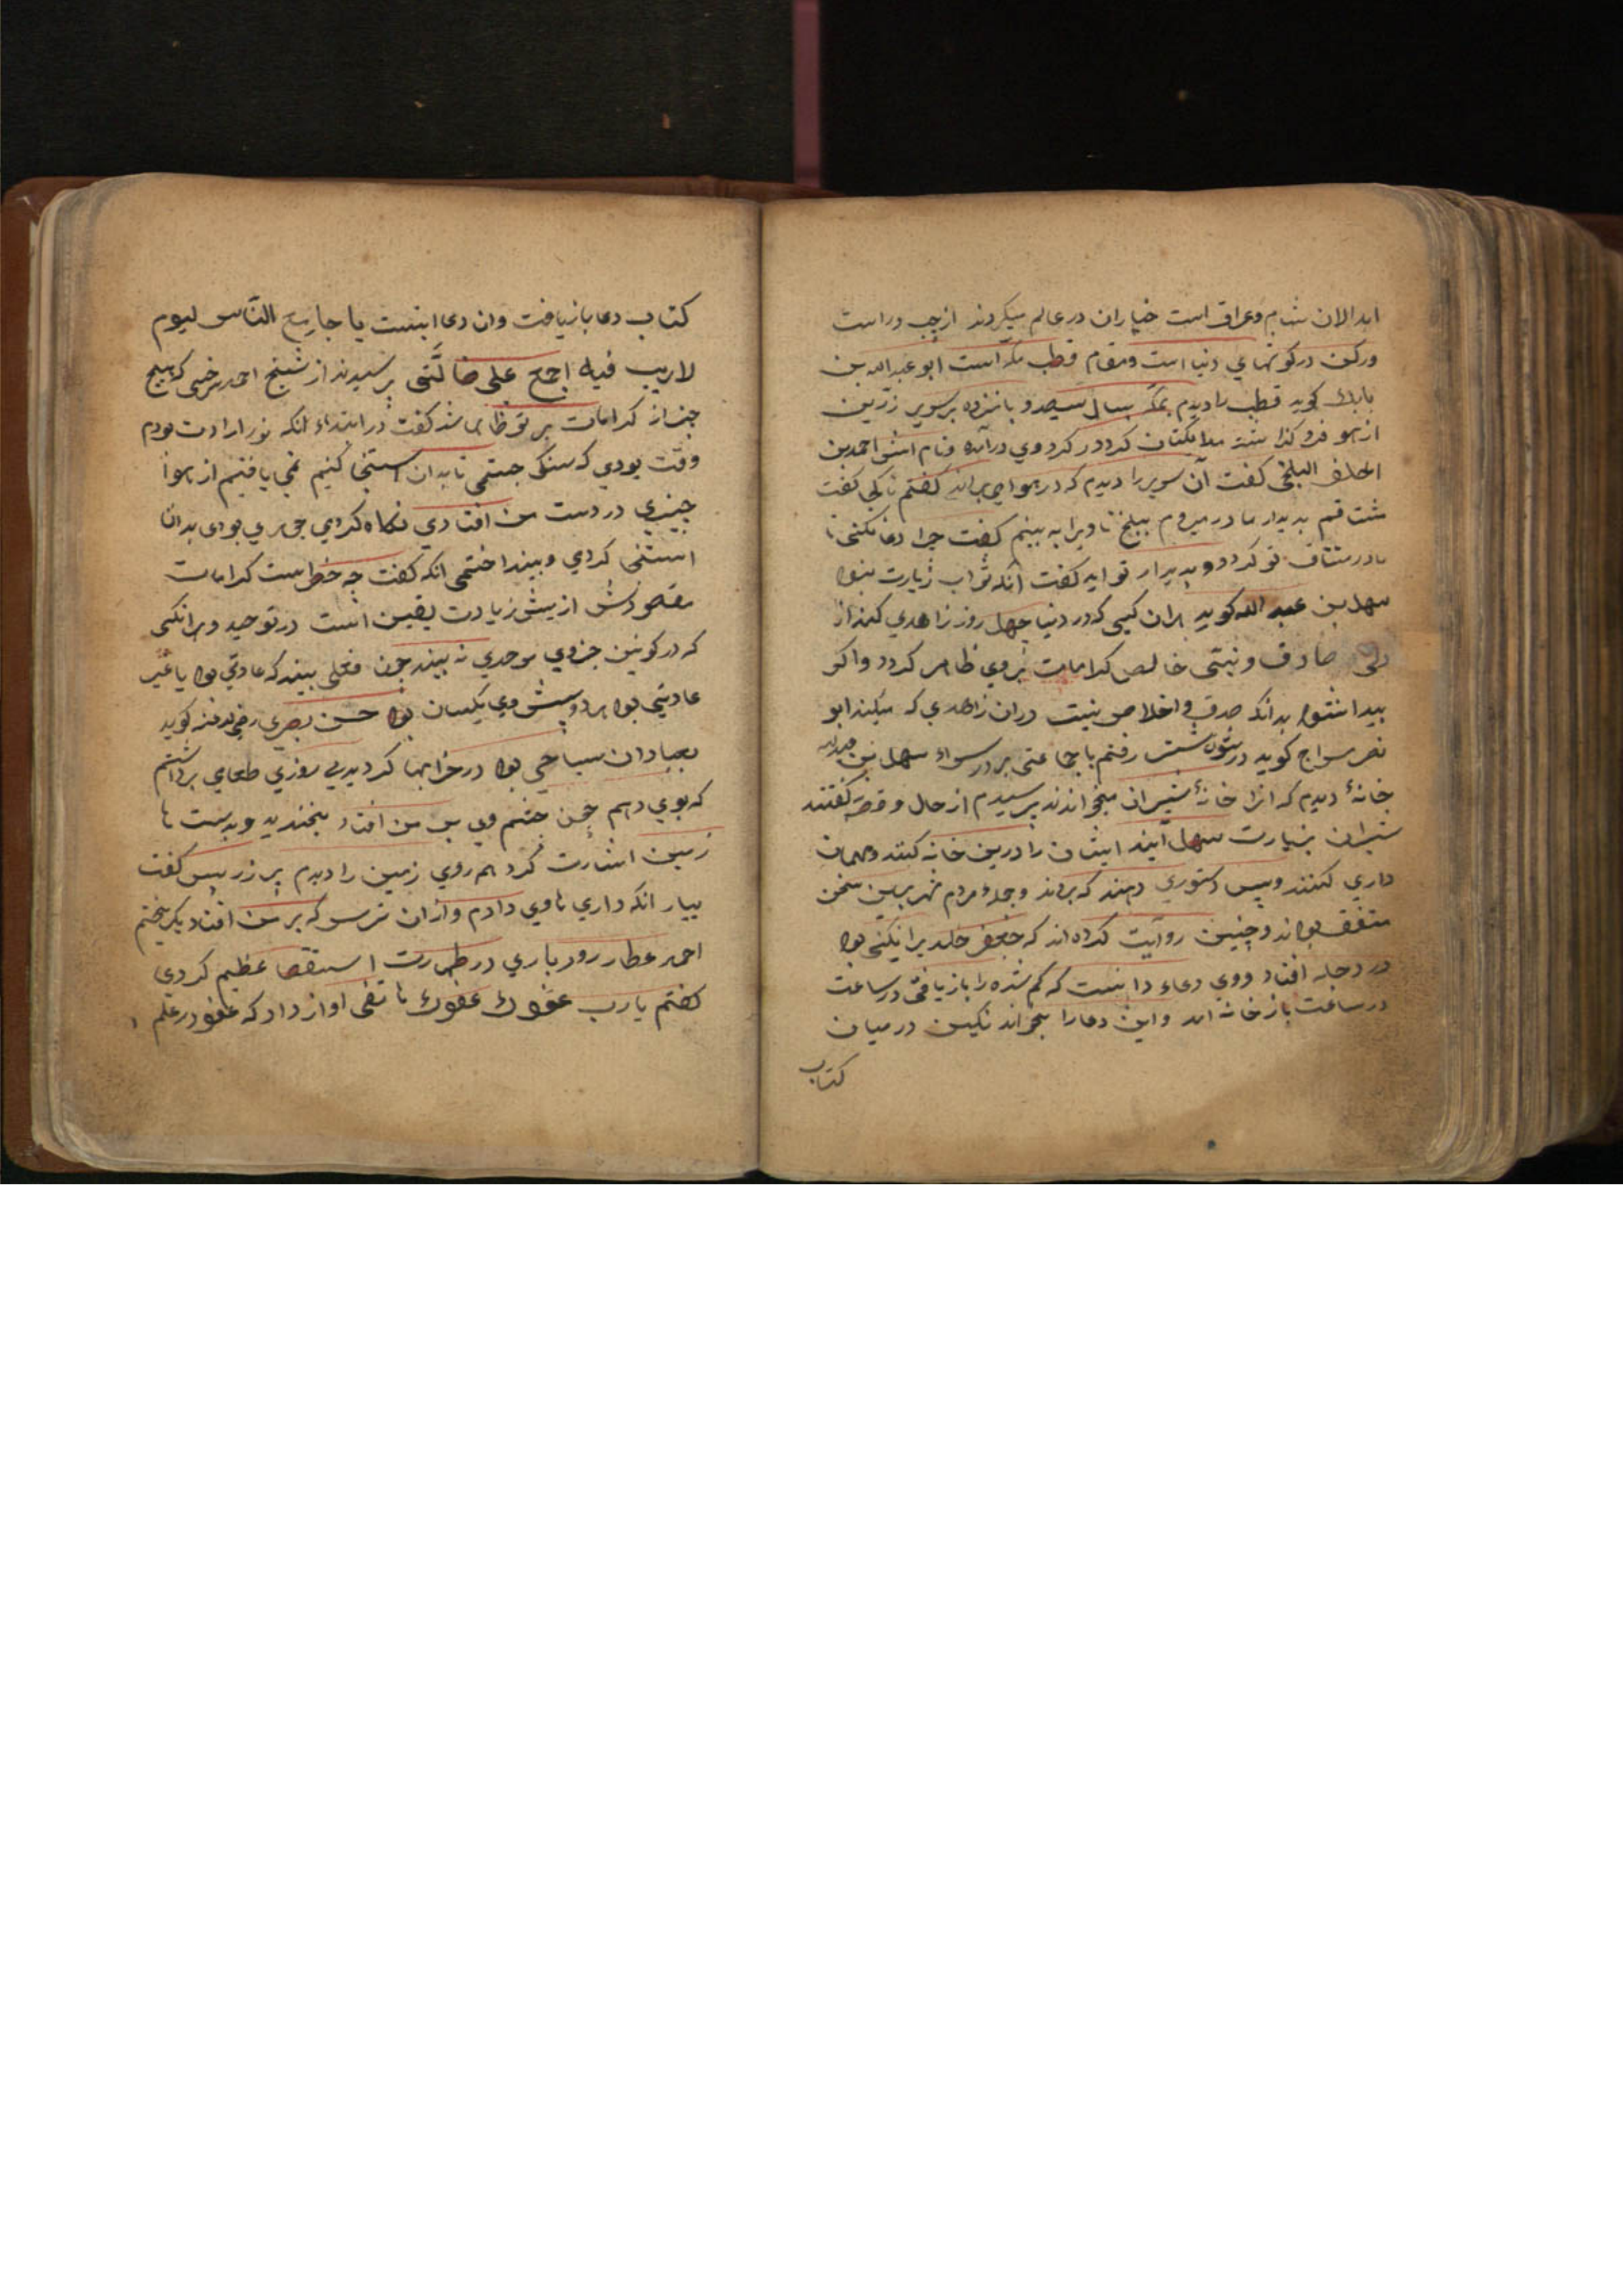 ابدالان شام وعراق است خیاران در عالم میکردند از چب وراست
ورکن درکونهاي دنیا است ومقام قطب مکه است ابو عبد الله بن
بابك کوید قطب را دیدم بمکه بسال سیصد و بانزده بر سریر زرین
از هو فرو کذا کردد کرد وي درآمده ونام اش احمد بن
البلخی کفت آن سریر را دیدم که در هوا می براند کفتم تا کی کفت
بدیدار مادر میروم ببلخ تا ویرا به بینم کفت جرا دعا نکنی تا
مادر مشتاق تو کردد وبدیدار تو اید کفت آنکه ثواب زیارت نبود
سهل بن عبد الله کوید هران کسی که در دنیا جهل روز زاهدي کند از
دلی صادق ونیتی خالص کرامات بروي ظاهر کردد واکر
بیدا نشود بدانکه صدق واخلاص نیست دران زاهدي که میکند ابو
نصر سراج کوید در شتر رفتم با جماعتی بر در سراء سهل بن عبد الله
خانهٔ دیدم که انرا خانهٔ شیران میخواندند برسیدم از حال وقصه کفتند
شیران بزیارت سهل آیند ایشان را درین خانه کنند ومهمان
داري کنند وبس دستوري دهند که بروند وجملهٔ مردم شهر برین سخن
متفق بودند وجنین روایت کرده اند که جعفر خلدیرا نکینی بود
در دجله افتاد ووي دعاء دانست که کم شده را باز یافتی در ساعت
در ساعت باز خانه آمد واین دعا را بخواند نکین در میان
کتاب
کتاب دعا باز یافت وان دعا اینست یا جامع الناس لیوم
لاریب فیه اجمع علی ضالّتی برسیدند از شیخ احمد سرخسی که هیج
جیز از کرامات بر تو ظاهر شد کفت در ابتداء انکه نور ارادت بودم
وقت بودي که سنکی جستمی تا بدان استنجا کنیم نمی یافتیم از هوا
جیزي در دست من افتادي نکاه کردمي جوهري بودی بدان
استنجا کردي وبینداختمی انکه کفت جه خطر است کرامات
مقصودش از بیش زیادت یقین است در توحید وهر انکسی
که در کونین جزوي موحدي نه بیند جون فعلی بیند که عادتي بود یا غیر
عادیتي بود هردو بیش وي یکسان بود حسن بصري رضی الله عنه کوید
بعبادان سیاحي بود در خرابها کردیدي روزي طعامي برداشتم
که بوي دهم جون جشم وي بر من افتاد بخندید وبدست با
زمین اشارت کرد همه روي زمین را دیدم بر زر بس کفت
بیار انکه داري باوي دادم وازان ترس که بر من افتاد بکریختم
احمد عطار رودباري در طهارت استقصا عظیم کردي
کفتم یارب عفوك عفوك هاتفی اواز داد که عفو در علم